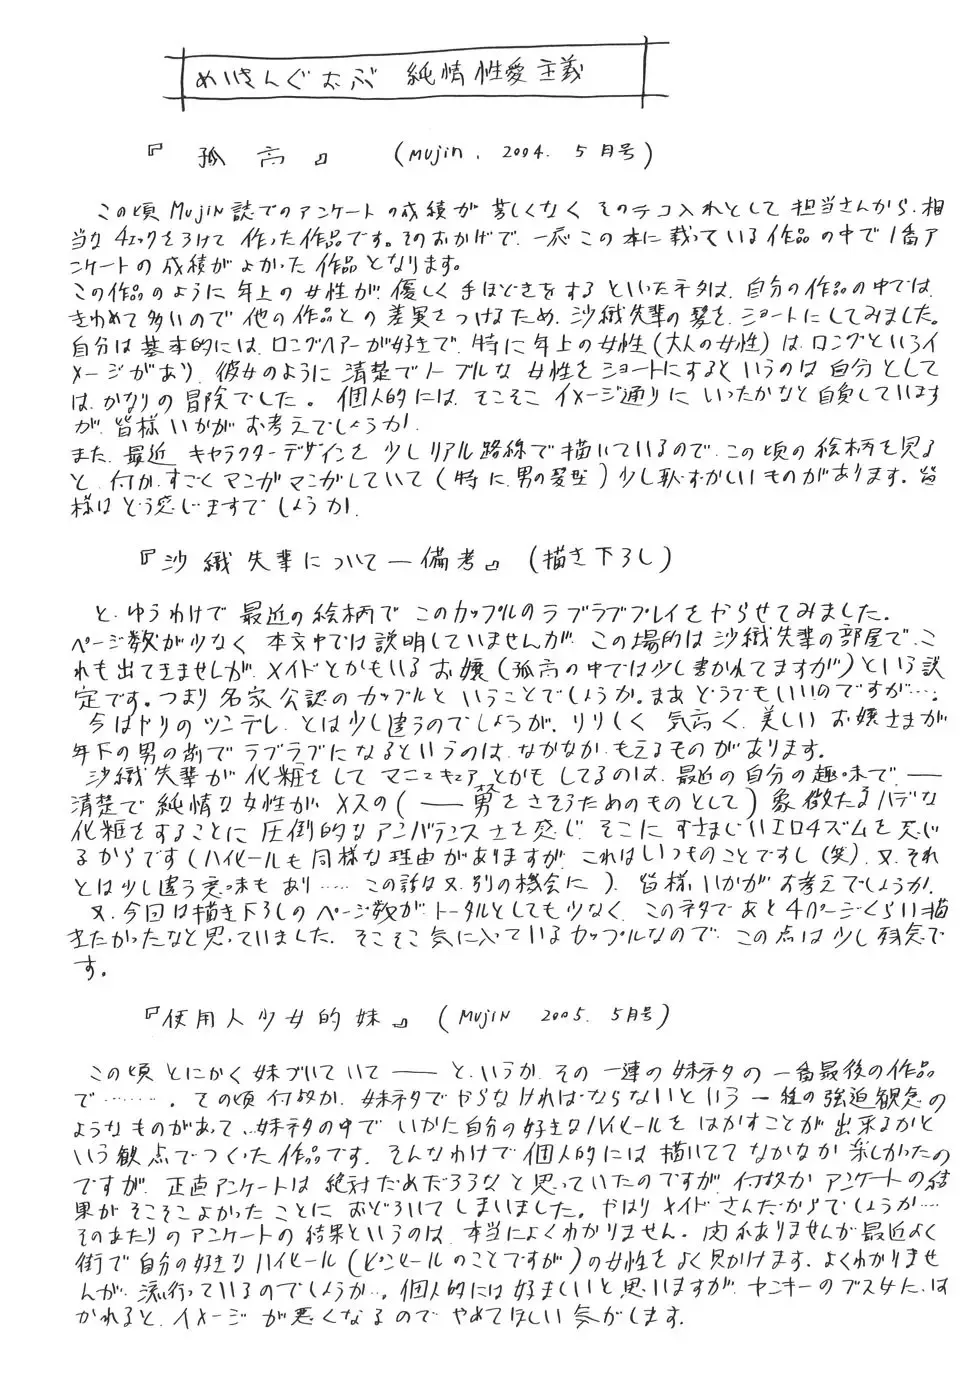 めいきんぐおぶ 純情性愛主義
『孤高』 (MUJIN. 2004. 5月号)
この頃MUJIN誌でのアンケートの成績が芳しくなくそのテコ入れとして担当さんから、相
当なチェックをうけて作った作品です。そのおかげで、一応この本に載っている作品の中で1番ア
ンケートの成績がよかった作品となります。
この作品のように年上の女性が、優しく手ほどきをするといったネタは、自分の作品の中では、
きわめて多いので他の作品との差異をつけるため、沙織先輩の髪を、ショートにしてみました。
自分は基本的には、ロングヘアーが好きで、特に年上の女性(大人の女性)は、ロングというイ
メージがあり、彼女のように清楚でノーブルな女性をショートにするというのは自分として
は、かなりの冒険でした。個人的には、そこそこイメージ通りにいったかなと自負しています
が、皆様いかがお考えでしょうか。
また、最近キャラクターデザインを少しリアル路線で描いているので、この頃の絵柄を見る
と、何かすごくマンガマンガしていて(特に、男の髪型)少し恥ずかしいものがあります。皆
様はどう感じますでしょうか。
『沙織先輩について―備考』 (描き下ろし)
と、ゆうわけで最近の絵柄でこのカップルのラブラブプレイをやらせてみました。
ページ数が少なく本文中では説明していませんが、この場所は沙織先輩の部屋で、こ
れも出てきませんが、メイドとかもいるお嬢(孤高の中では少し書かれてますが)という設
定です。つまり名家公認のカップルということでしょうか。まあどうでもいいのですが…。
今はやりのツンデレ、とは少し違うのでしょうが、りりしく気高く、美しいお嬢さまが
年下の男の前でラブラブになるというのは、なかなか、もえるものがあります。
沙織先輩が化粧をしてマニキュアとかもしてるのは、最近の自分の趣味で、――
清楚で純情な女性が、メスの(――男をさそうためのものとして)象徴たるハデな
化粧をすることに圧倒的なアンバランスさを感じ、そこにすさまじいエロチズムを感じ
るからです(ハイヒールも同様な理由がありますが、これはいつものことですし(笑)、又、それ
とは少し違う意味もあり……この話は又、別の機会に)。皆様、いかがお考えでしょうか。
又、今回は描き下ろしのページ数が、トータルとしても少なく、このネタであと4ページくらい描
きたかったなと思っていました。そこそこ気に入っているカップルなので、この点は少し残念で
す。
『使用人少女的妹』 (MUJIN 2005. 5月号)
この頃とにかく妹づいていて――と、いうか、その一連の妹ネタの一番最後の作品
で………。この頃何故か、妹ネタでやらなければならないという一種の強迫観念の
ようなものがあって、妹ネタの中でいかに自分の好きなハイヒールをはかすことが出来るかと
いう観点でつくった作品です。そんなわけで個人的には描いててなかなか楽しかったの
ですが、正直アンケートは絶対だめだろうなと思っていたのですが、何故かアンケートの結
果がそこそこよかったことにおどろいてしまいました。やはりメイドさんだからでしょうか…
そのあたりのアンケートの結果というのは、本当によくわかりません。関係ありませんが最近よく
街で自分の好きなハイヒール(ピンヒールのことですが)の女性をよく見かけます。よくわかりませ
んが、流行っているのでしょうか。個人的には好ましいと思いますが、ヤンキーのブス女に、は
かれると、イメージが悪くなるのでやめてほしい気がします。